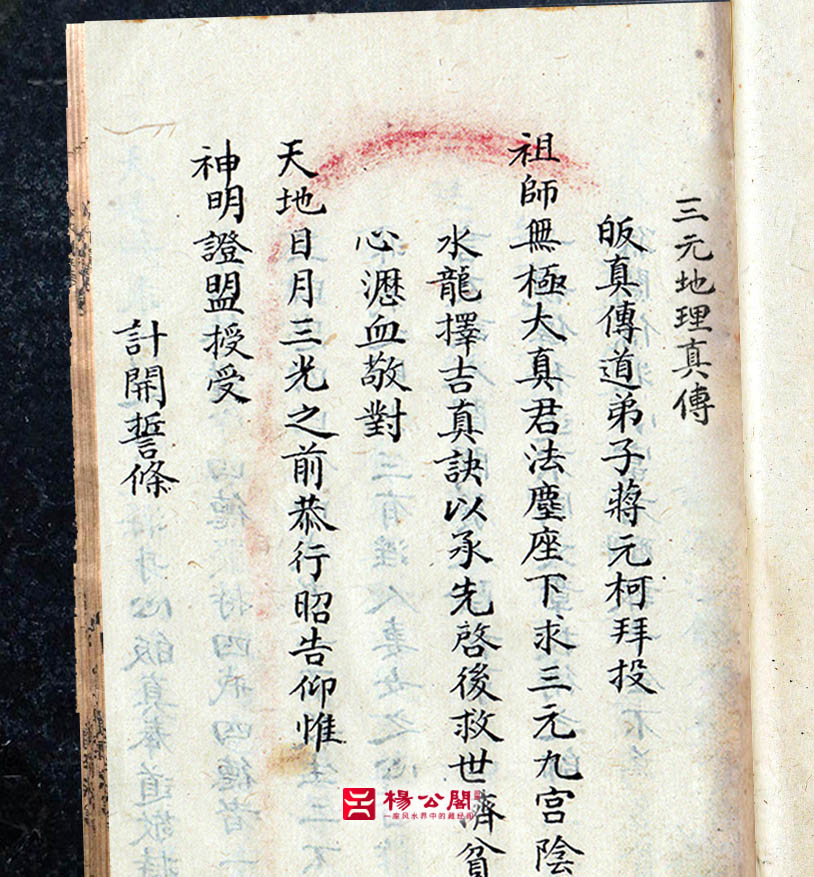 三元地理真傳
皈真傳道弟子蔣元柯拜投
祖師無極大真君法塵座下求三元九宮陰
水龍擇吉真訣以承先啓後救世濟貧
心瀝血敬對
天地日月三光之前恭行昭告仰惟
神明證盟授受
計開誓條
楊公閣
一座风水界中的藏经阁